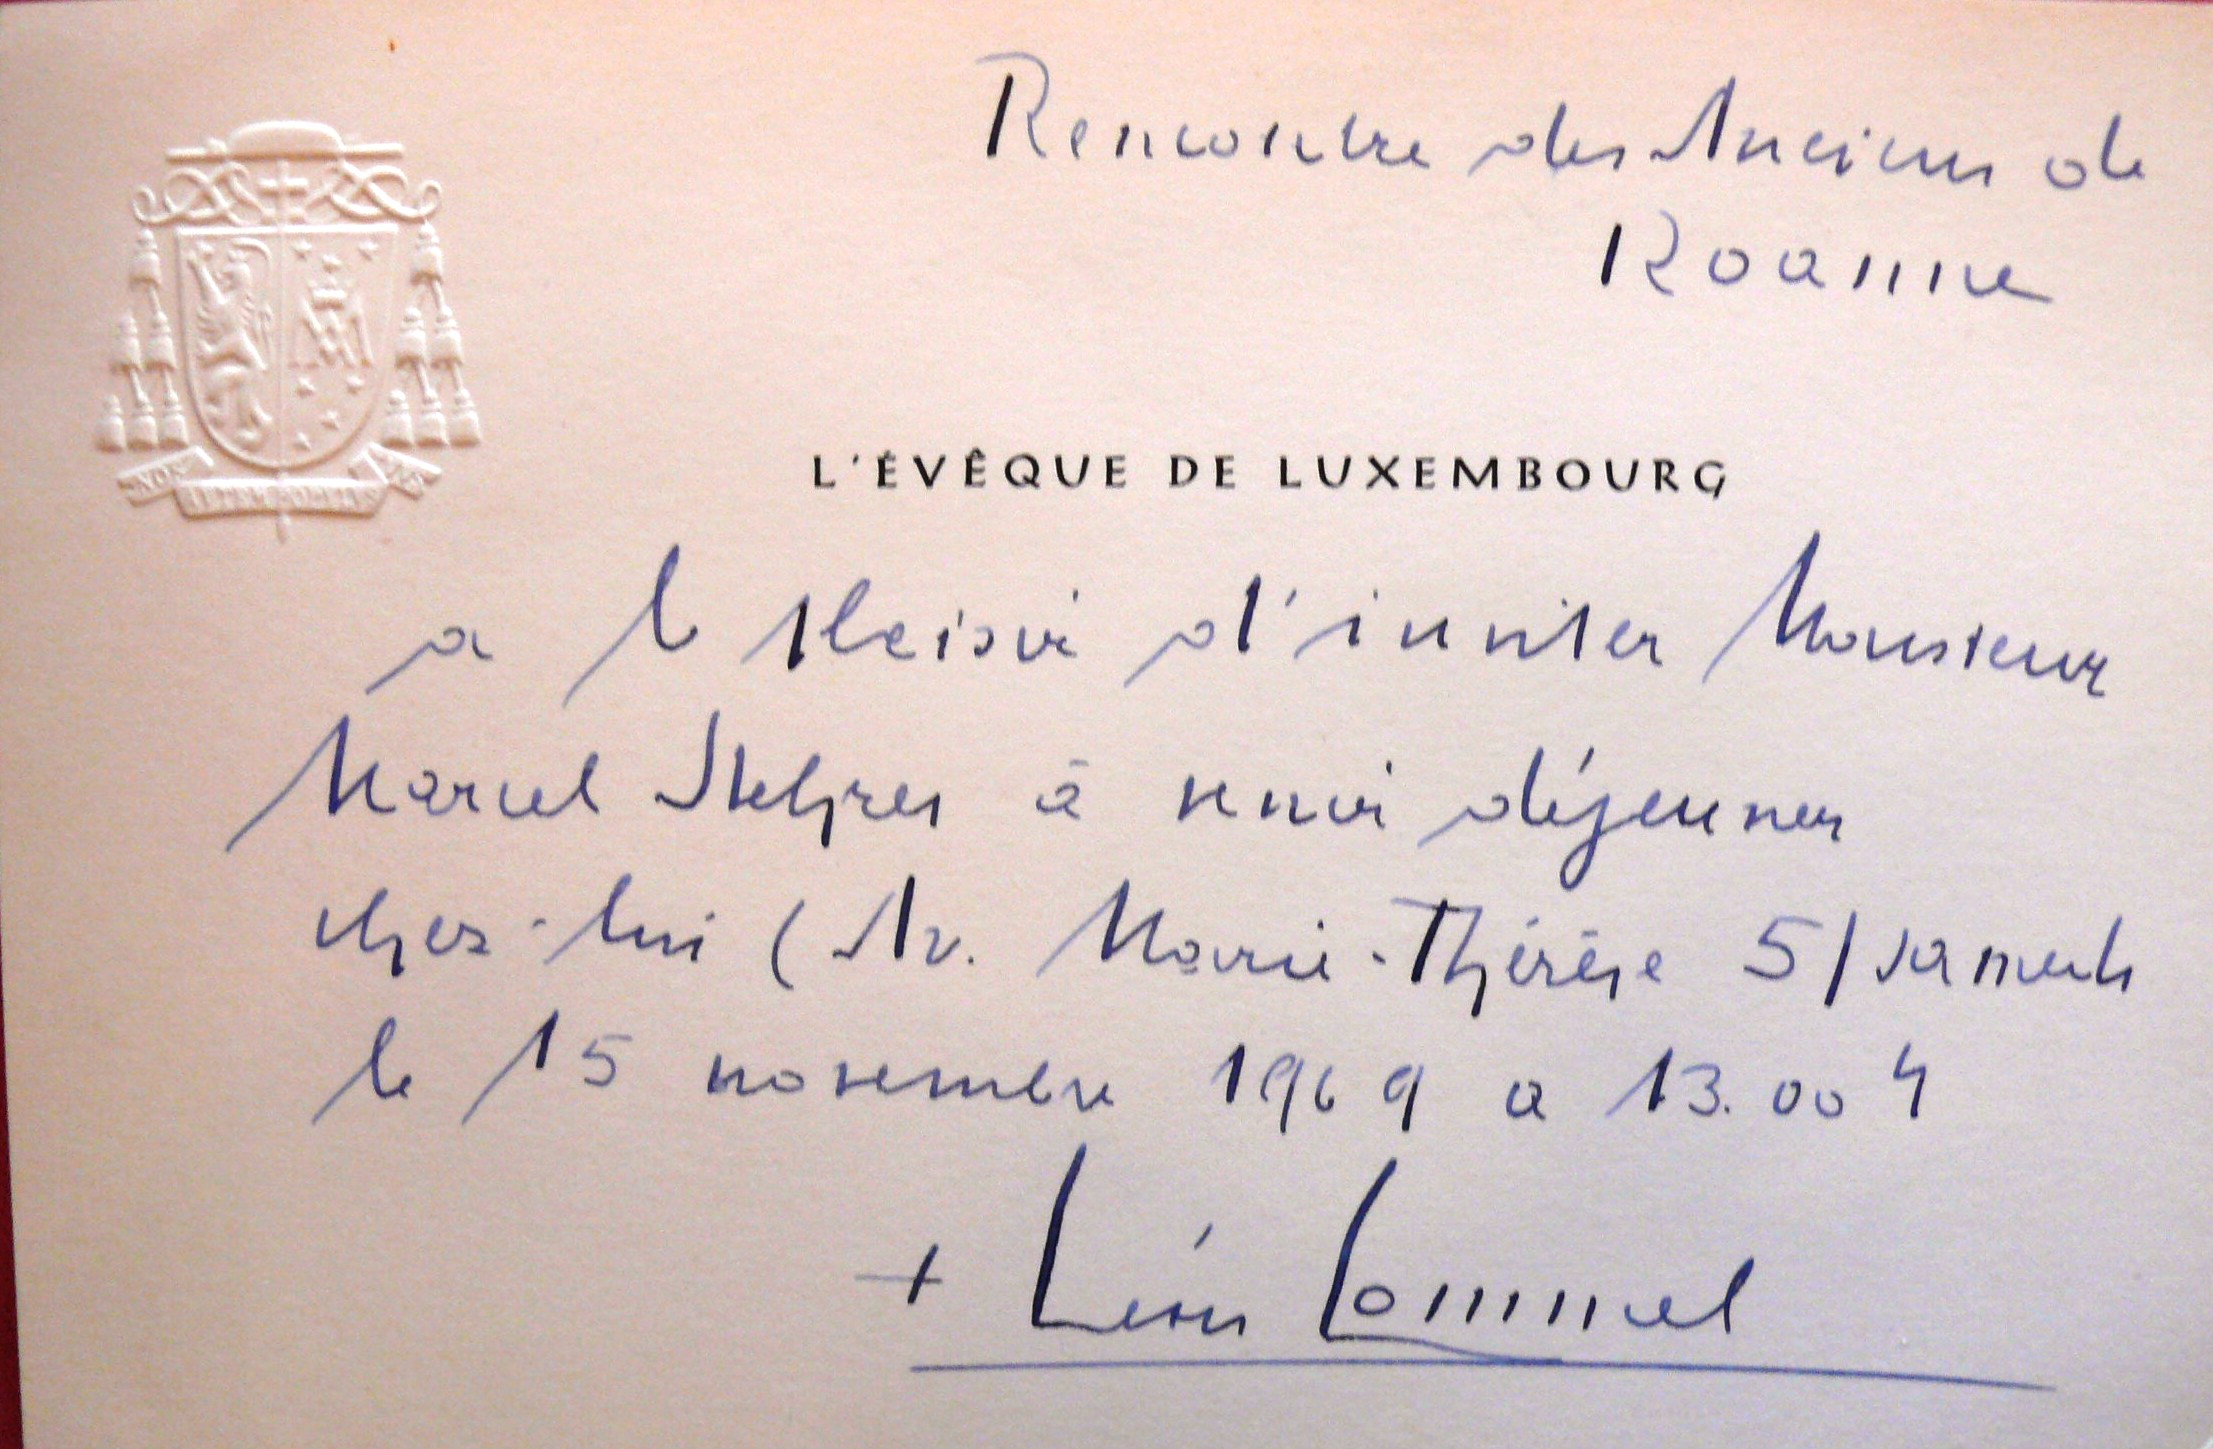 Rencontre des Anciens de
Roanne
L'ÉVÊQUE DE LUXEMBOURG
a le plaisir d'inviter Monsieur
Marcel à venir déjeuner
chez-lui (Av. Marie-Thérèse 5/ samedi
le 15 novembre 1969 a 13.00 h
+ Léon Lommel